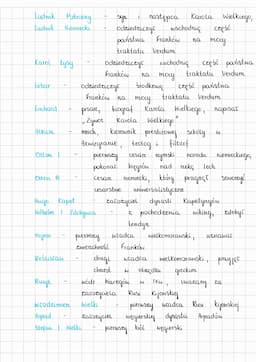 Ludwik Pobożny - syn i następca Karola Wielkiego,
Ludwik Niemiecki - odziedziczył wschodnią część
państwa Franków na mocy
traktatu Verdum
Karol Łysy - odziedziczył zachodnią część państwa
Franków na mocy traktatu Verdum
Lotar - odziedziczył środkową część państwa
Franków na mocy traktatu Verdum
Einhard - pisarz, biograf Karola Wielkiego, napisał
"Żywot Karola Wielkiego"
Alkuin - mnich, kierownik pałacowej szkoły w
Akwizgranie, teolog i filozof
Otton I - pierwszy cesarz rzymski narodu niemieckiego,
pokonał Węgrów nad rzeką Lech
Otton III - cesarz niemiecki, który pragnął stworzyć
cesarstwo uniwersalistyczne
Hugo Kapet - założyciel dynastii Kapetyngów
Wilhelm I Zdobywca - z pochodzenia wiking, zdobył
Londyn
Mojmir - pierwszy władca wielkomorawski, uznawał
zwierzchność Franków
Rościsław - drugi władca wielkomorawski, przyjął
chrzest w obrządku greckim
Ruryk - wódz Waregów w IX w., uważany za
założyciela Rusi Kijowskiej
Włodzimierz Wielki - pierwszy władca Rusi Kijowskiej
Arpad - założyciel węgierskiej dynastii Arpadów
Stefan I Wielki - pierwszy król węgierski